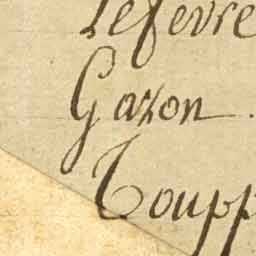 Lefevre
Gazon.
Toupp